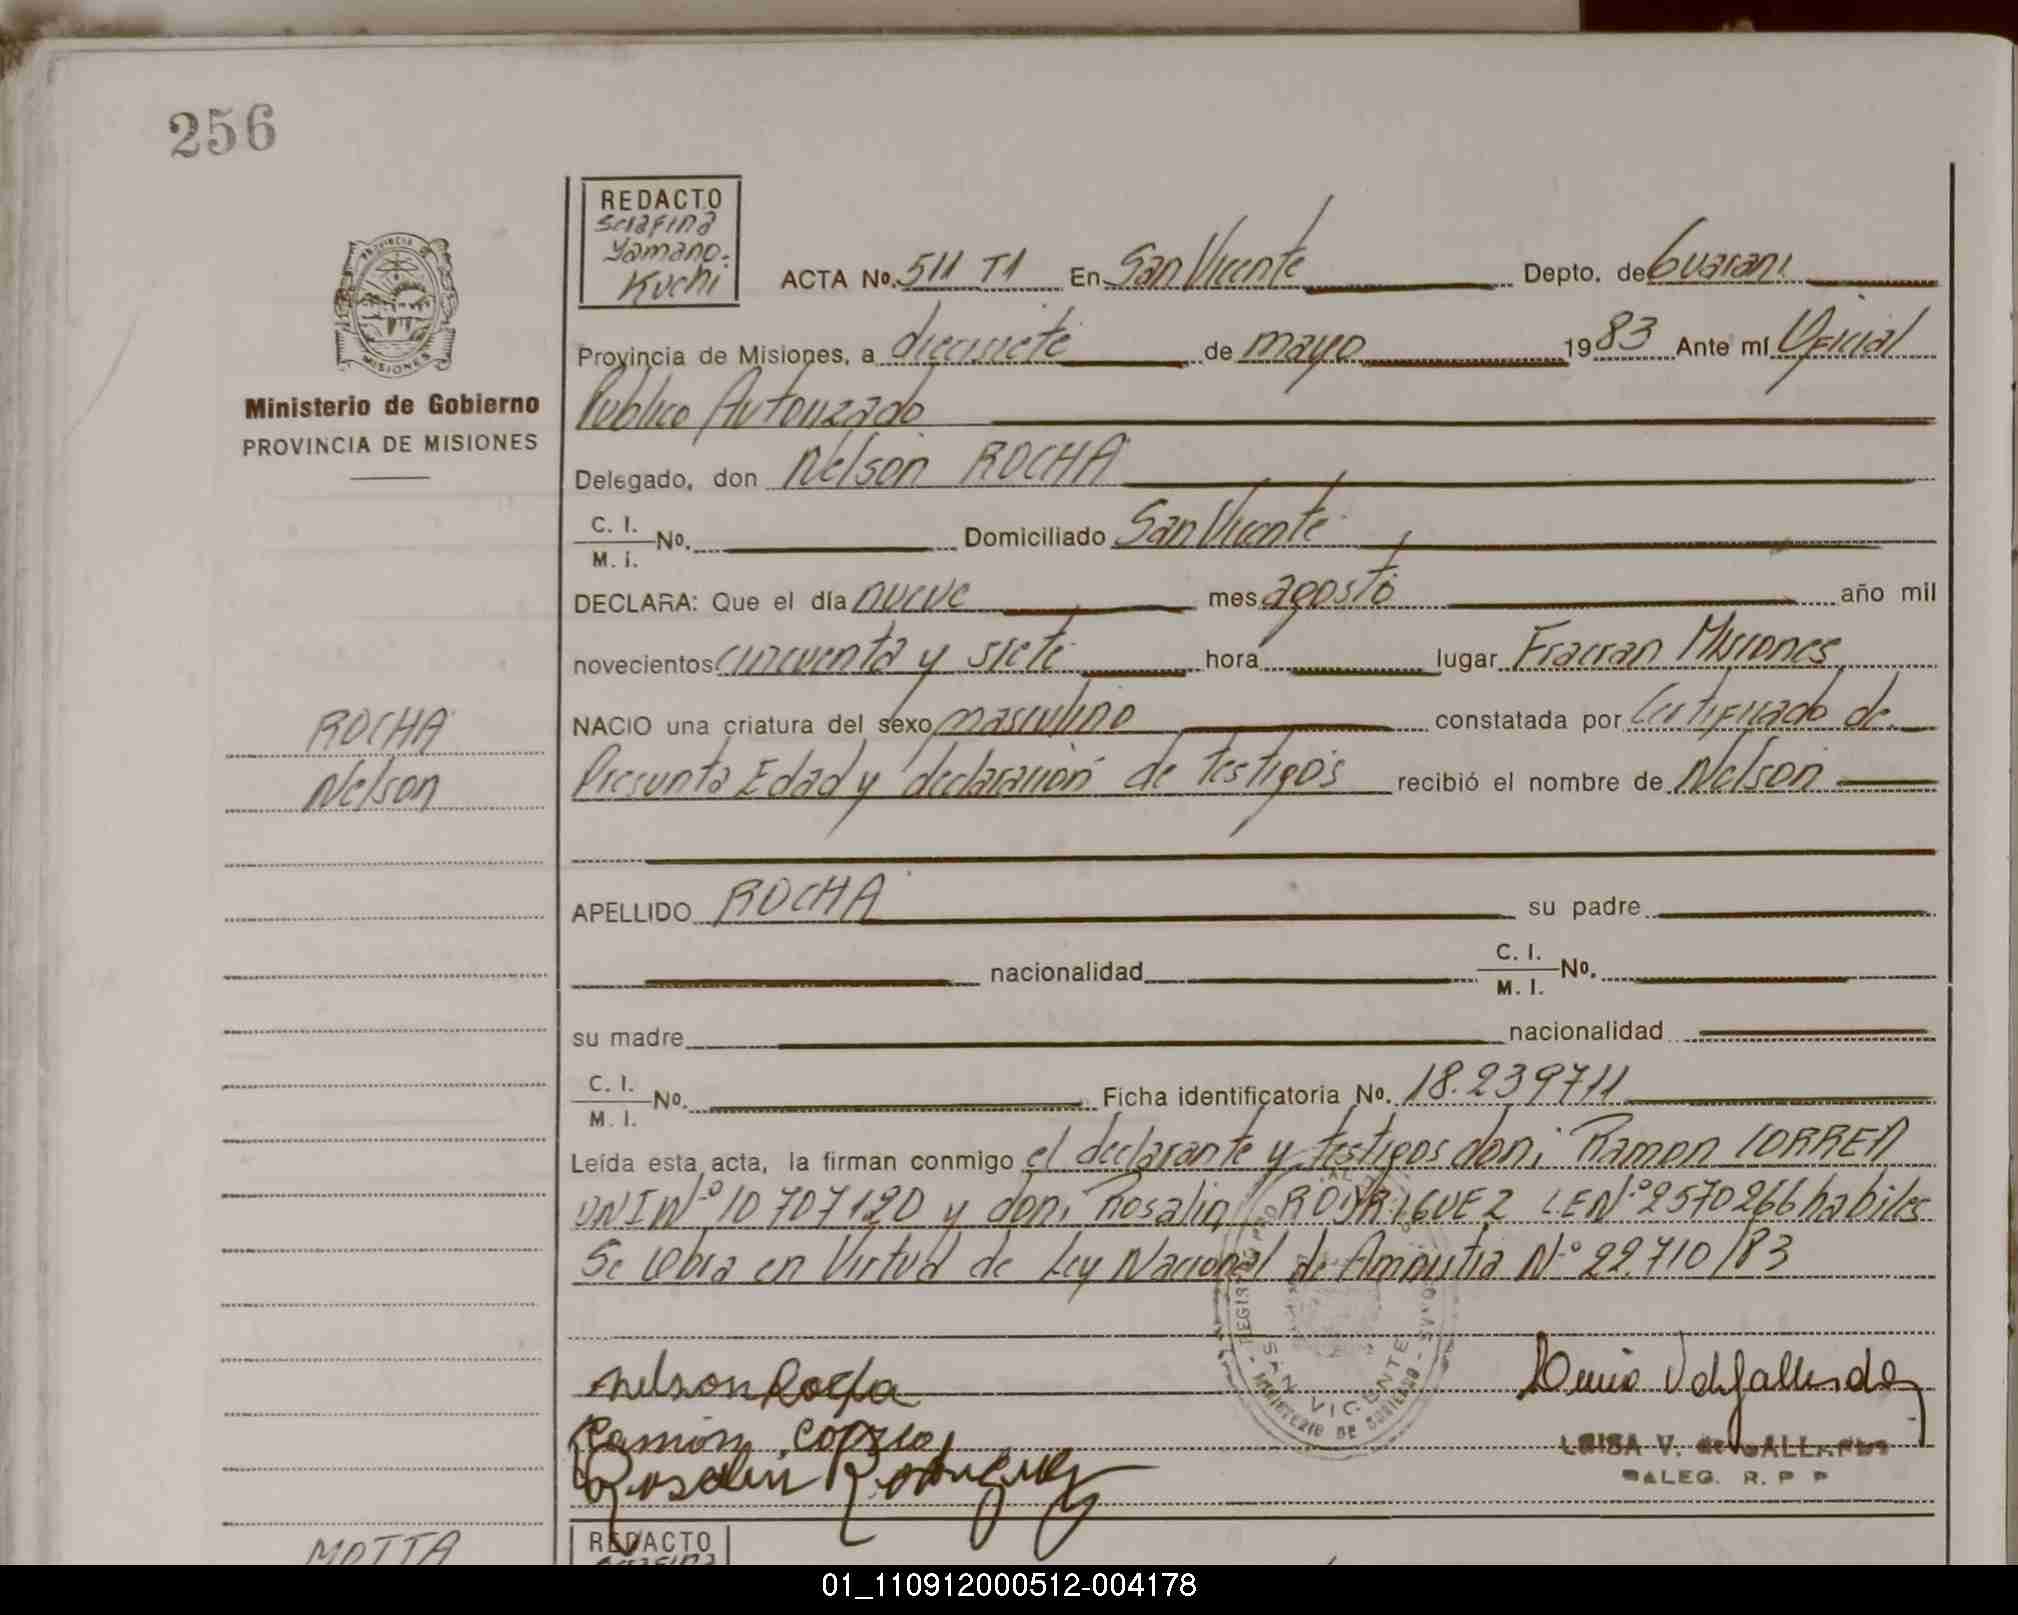 256
REDACTO
Yamano.
Kuchi
ACTA No. 511 T1 En San Vicente Depto. de Guarani
Provincia de Misiones, a diecisiete de mayo 1983 Ante mí Oficial
Publico Autorizado
Ministerio de Gobierno
PROVINCIA DE MISIONES
Delegado, don Nelson ROCHA
C. I.
M. I. No. Domiciliado San Vicente
DECLARA: Que el día nueve mes agosto año mil
novecientos cincuenta y siete hora lugar Fracran Misiones
ROCHA
Nelson
NACIO una criatura del sexo masculino constatada por Certificado de
Presunta Edad y declaracion de testigos recibió el nombre de Nelson
APELLIDO ROCHA su padre
nacionalidad C. I.
M. I. No.
su madre nacionalidad
C. I.
M. I. No. Ficha identificatoria No. 18.239711
Leída esta acta, la firman conmigo el declarante y testigos don; Ramon CORREA
DNI Nº 10707120 y don; Rosalin RODRIGUEZ LE Nº 2570266 habiles
Se labra en Virtud de Ley Nacional de Amnistia Nº 22.710/83
SAN VICENTE
Nelson Rocha
Ramón Correa
Rosalin Rodriguez
LUISA V. de GALL
DALEG. R. P P
MOTTA
REDACTO
01_110912000512-004178